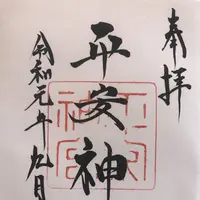 奉拝
平安神
令和元年九月